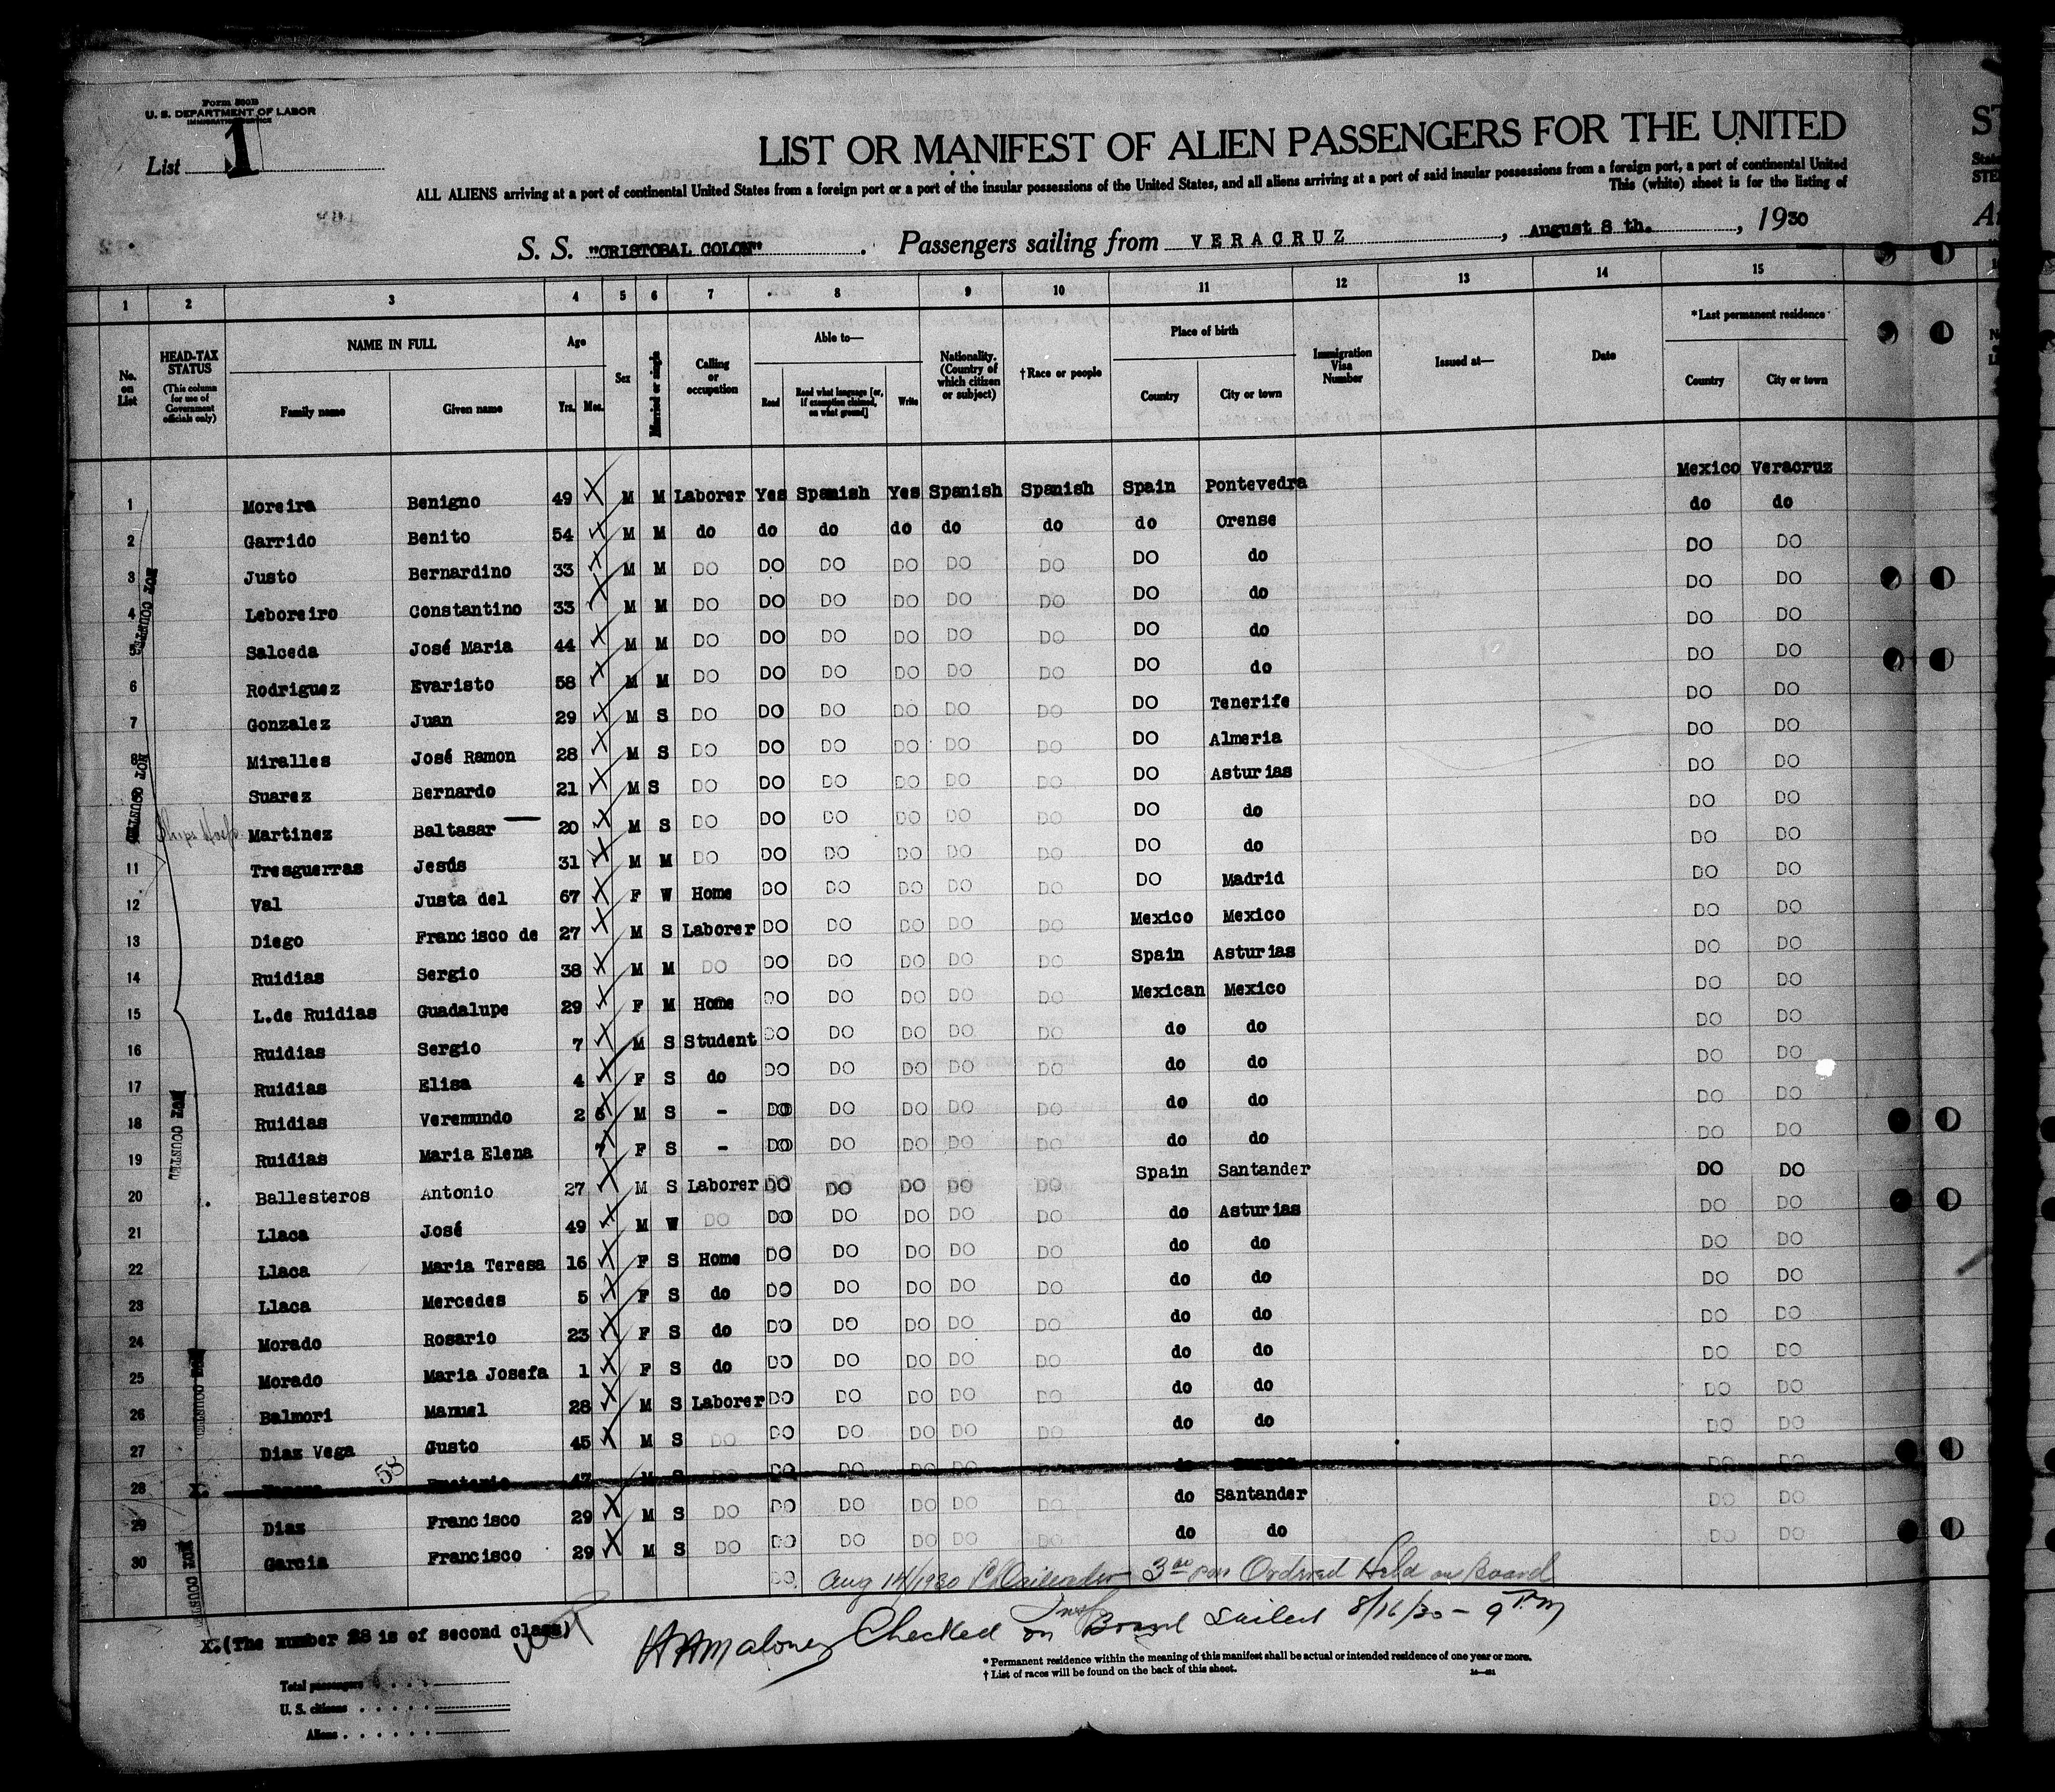 Form 500B
U. S. DEPARTMENT OF LABOR
IMMIGRATION SERVICE
List 1
LIST OR MANIFEST OF ALIEN PASSENGERS FOR THE UNITED
ALL ALIENS arriving at a port of continental United States from a foreign port or a port of the insular possessions of the United States, and all aliens arriving at a port of said insular possessions from a foreign port, a port of continental United
This (white) sheet is for the listing of
S. S. "CRISTOBAL COLON". Passengers sailing from VERACRUZ, August 8 th., 1930
1 2 3 4 5 6 7 8 9 10 11 12 13 14 15
No. on List
HEAD-TAX STATUS (This column for use of Government officials only)
NAME IN FULL
Family name Given name
Age
Yrs. Mos.
Sex
Married or single
Calling or occupation
Able to—
Read Read what language [or, if exemption claimed, on what ground] Write
Nationality. (Country of which citizen or subject)
†Race or people
Place of birth
Country City or town
Immigration Visa Number
Issued at—
Date
*Last permanent residence
Country City or town
1 Moreira Benigno 49 M M Laborer Yes Spanish Yes Spanish Spanish Spain Pontevedra Mexico Veracruz
2 Garrido Benito 54 M M do do do do do do do Orense do do
3 Justo Bernardino 33 M M DO DO DO DO DO DO DO do DO DO
4 Leboreiro Constantino 33 M M DO DO DO DO DO DO DO do DO DO
5 Salceda José Maria 44 M M DO DO DO DO DO DO DO do DO DO
6 Rodriguez Evaristo 58 M M DO DO DO DO DO DO DO do DO DO
7 Gonzalez Juan 29 M S DO DO DO DO DO DO DO Tenerife DO DO
8 Miralles José Ramon 28 M S DO DO DO DO DO DO DO Almeria DO DO
Suarez Bernardo 21 M S DO DO DO DO DO DO DO Asturias DO DO
Martinez Baltasar 20 M S DO DO DO DO DO DO DO do DO DO
11 Tresguerras Jesús 31 M M DO DO DO DO DO DO DO do DO DO
12 Val Justa del 67 F W Home DO DO DO DO DO DO Madrid DO DO
13 Diego Francisco de 27 M S Laborer DO DO DO DO DO Mexico Mexico DO DO
14 Ruidias Sergio 38 M M DO DO DO DO DO DO Spain Asturias DO DO
15 L.de Ruidias Guadalupe 29 F M Home DO DO DO DO DO Mexican Mexico DO DO
16 Ruidias Sergio 7 M S Student DO DO DO DO DO do do DO DO
17 Ruidias Elisa 4 F S do DO DO DO DO DO do do DO DO
18 Ruidias Veremundo 2 6 M S - DO DO DO DO DO do do DO DO
19 Ruidias Maria Elena 7 F S - DO DO DO DO DO do do DO DO
20 Ballesteros Antonio 27 M S Laborer DO DO DO DO DO Spain Santander DO DO
21 Llaca José 49 M W DO DO DO DO DO DO do Asturias DO DO
22 Llaca Maria Teresa 16 F S Home DO DO DO DO DO do do DO DO
23 Llaca Mercedes 5 F S do DO DO DO DO DO do do DO DO
24 Morado Rosario 23 F S do DO DO DO DO DO do do DO DO
25 Morado Maria Josefa 1 F S do DO DO DO DO DO do do DO DO
26 Balmori Manuel 28 M S Laborer DO DO DO DO DO do do DO DO
27 Diaz Vega Gusto 45 M S DO DO DO DO DO DO do do DO DO
28 X. 58 47 M S DO DO DO DO DO DO do Burgos DO DO
29 Diaz Francisco 29 M S DO DO DO DO DO DO do Santander DO DO
30 Garcia Francisco 29 M S DO DO DO DO DO DO do do DO DO
NOT COUNTED
NOT COUNTED
NOT COUNTED
NOT COUNTED
NOT COUNTED
DO. Aug 14/1930 3 00 pm Ordered Held on Board
X.(The number 28 is of second class)
Maloney Checked on Board Sailed 8/16/30 - 9 PM
Insp
* Permanent residence within the meaning of this manifest shall be actual or intended residence of one year or more.
† List of races will be found on the back of this sheet.
Total passengers
U. S. citizens
Aliens